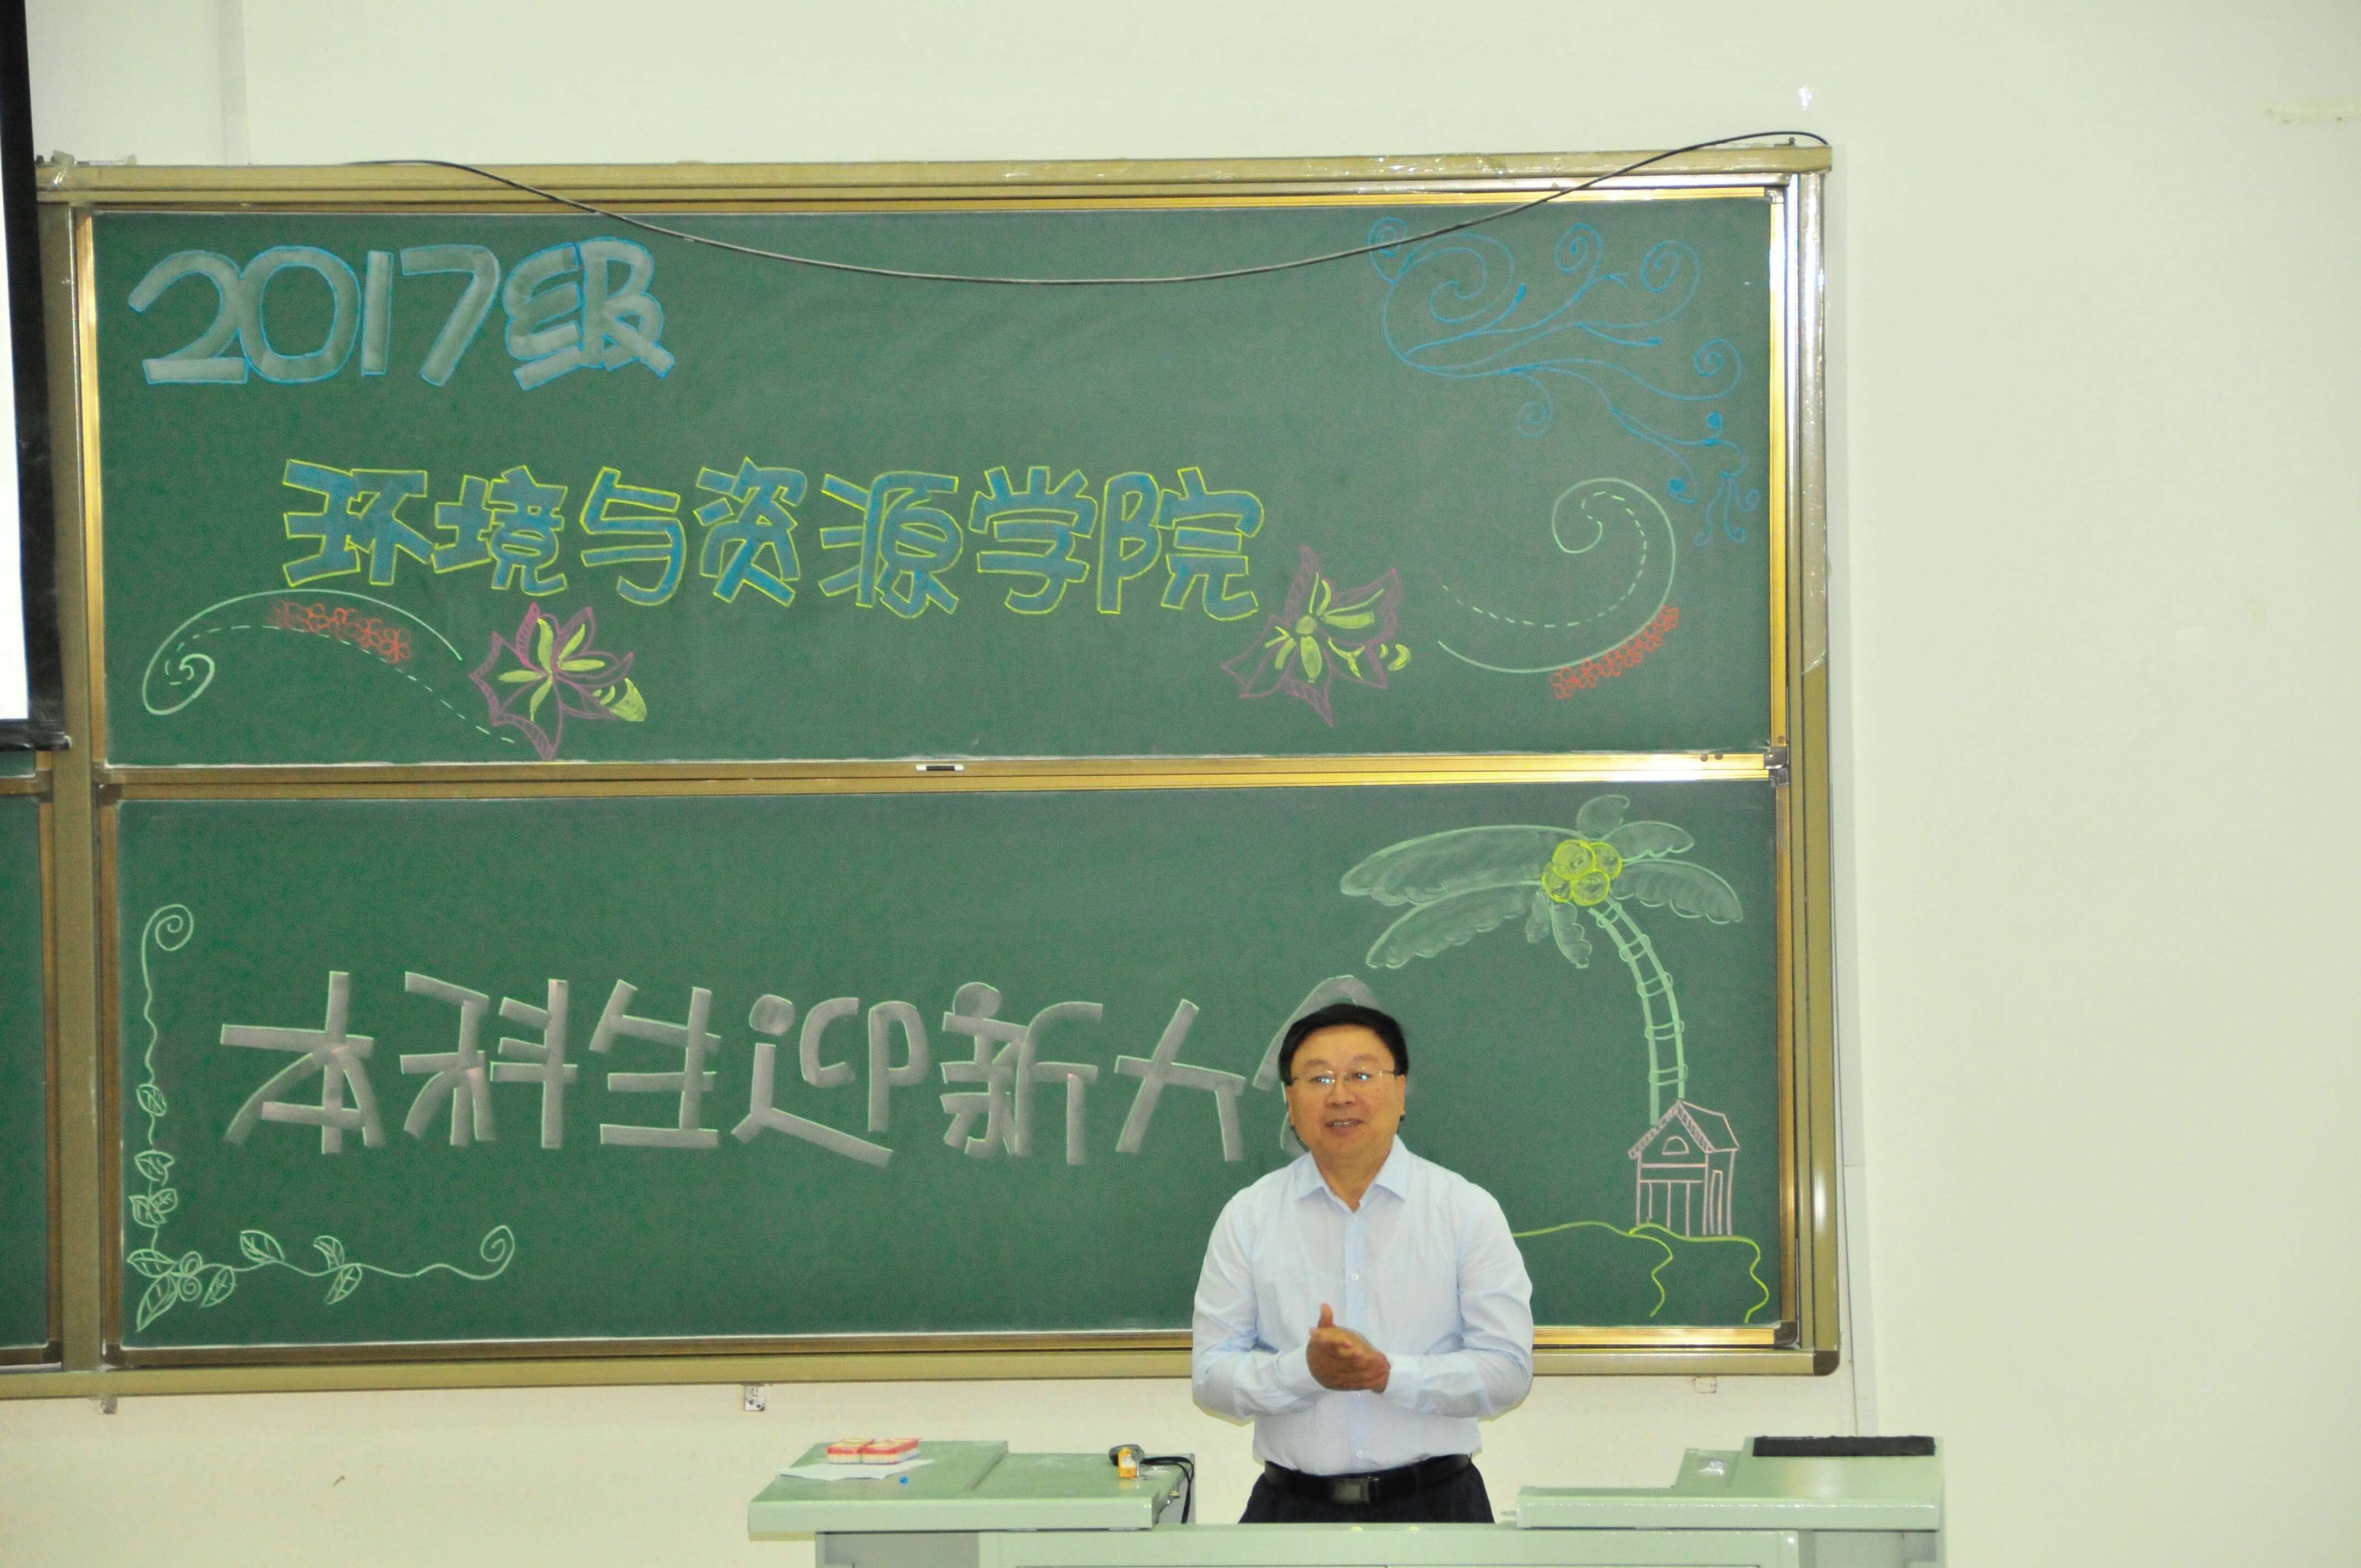 2017级
环境与资源学院
本科生迎新大